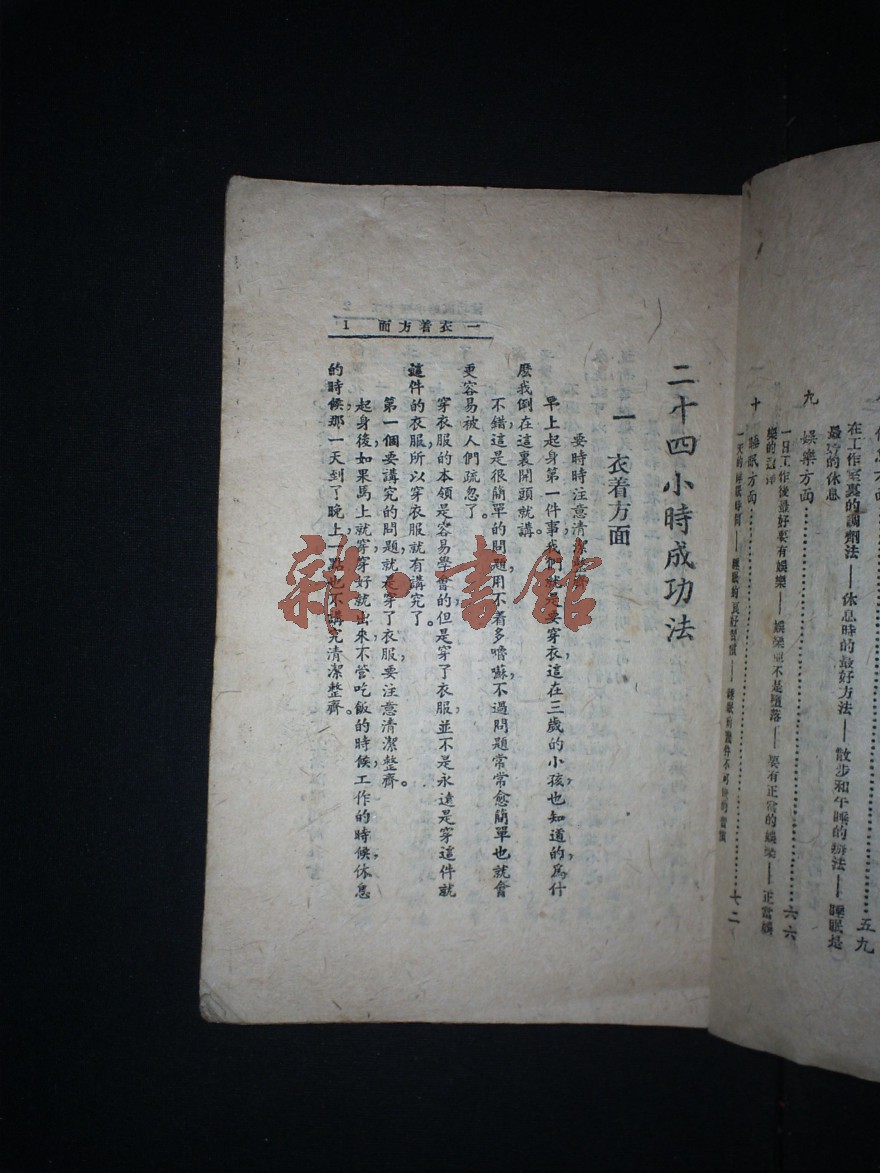 在工作室裏的調劑法——休息時的最好方法——散步和午睡的辦法——睡眠是
最好的休息
五九
九 娛樂方面……六六
一日工作後最好要有娛樂——娛樂並不是墮落——要有正當的娛樂——正當娛
樂的選擇
十 睡眠方面……七二
一天的睡眠時間——睡眠的良好習慣——睡眠的幾件不可
二十四小時成功法
一 衣着方面
要時時注意清潔整齊
早上起身第一件事我們就是要穿衣,這在三歲的小孩,也知道的,爲什
麼我倒在這裏開頭就講。
不錯,這是很簡單的問題,用不着多嚕囌,不過問題常常愈簡單,也就會
更容易被人們疏忽了。
穿衣服的本領是容易學會的,但是穿了衣服並不是永遠是穿這件就
這件的衣服,所以穿衣服就有講究了。
第一個要講究的問題,就是穿了衣服,要注意清潔整齊。
起身後,如果馬上就穿,穿好就出來,不管吃飯的時候,工作的時候,休息
的時候,那一天到了晚上,一點也不講究清潔整齊。
一 衣着方面 1
雜·書館